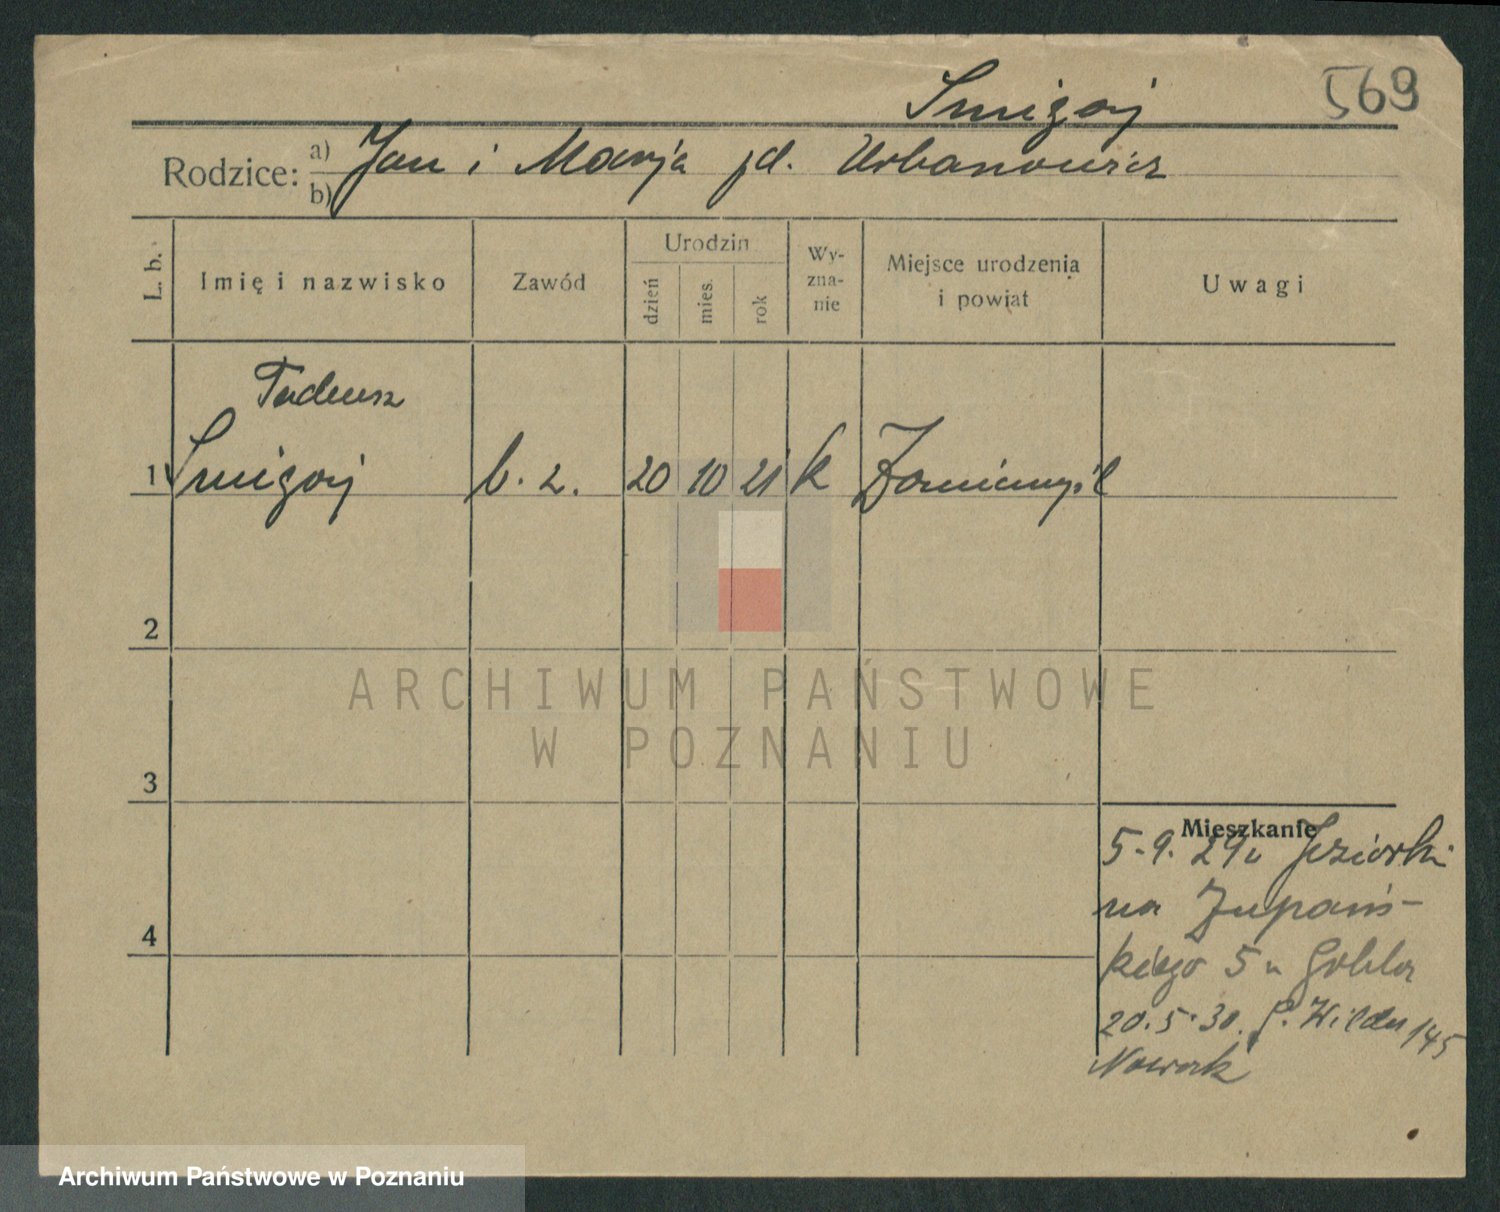 Śmigaj 569
Rodzice: a) b) Jan i Marja zd. Urbanowicz
L. b. Imię i nazwisko Zawód Urodzin dzień mies. rok Wy-zna-nie Miejsce urodzenia i powiat Uwagi
Tadeusz
1 Śmigaj b. z. 20 10 21 k Zaniemyśl
2
ARCHIWUM PAŃSTWOWE
W POZNANIU
3
Mieszkanie
5.9.29 Jeziorki
na Żupańs-
4
kiego 5 u
20.5.30. G. Wilda 145
Nowak
Archiwum Państwowe w Poznaniu